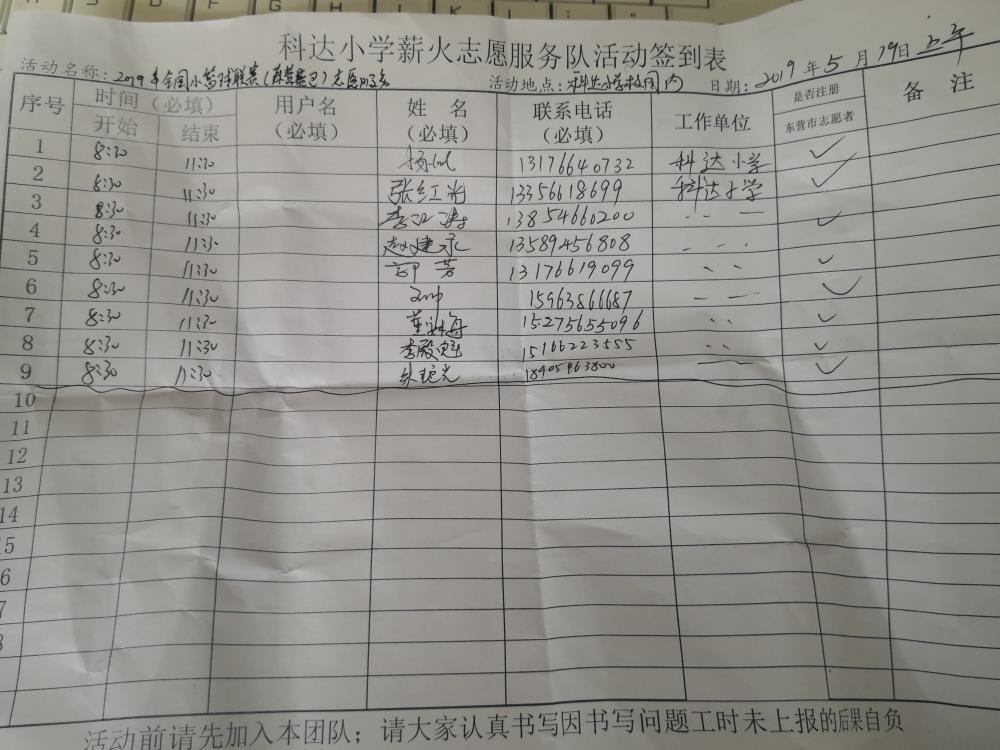 科达小学薪火志愿服务队活动签到表
活动名称：2019年全国小篮球联赛（东营赛区）志愿服务 活动地点：科达小学校园内 日期：2019年5月19日 上午
序号 时间（必填） 用户名（必填） 姓名（必填） 联系电话（必填） 工作单位 是否注册东营市志愿者 备注
开始 结束
1 8:30 11:30 13176640732 科达小学 ✓
2 8:30 11:30 张红光 13356618699 科达小学 ✓
3 8:30 11:30 13854660200 ✓
4 8:30 11:30 赵建永 13589456808
5 8:30 11:30 郭芳 13176619099 ✓
6 8:30 11:30 15963866687 ✓
7 8:30 11:30 15275655096 ✓
8 8:30 11:30 李殿魁 15166223555 ✓
9 8:30 11:30 18905463800 ✓
10
11
12
13
14
15
6
7
8
活动前请先加入本团队；请大家认真书写因书写问题工时未上报的后果自负